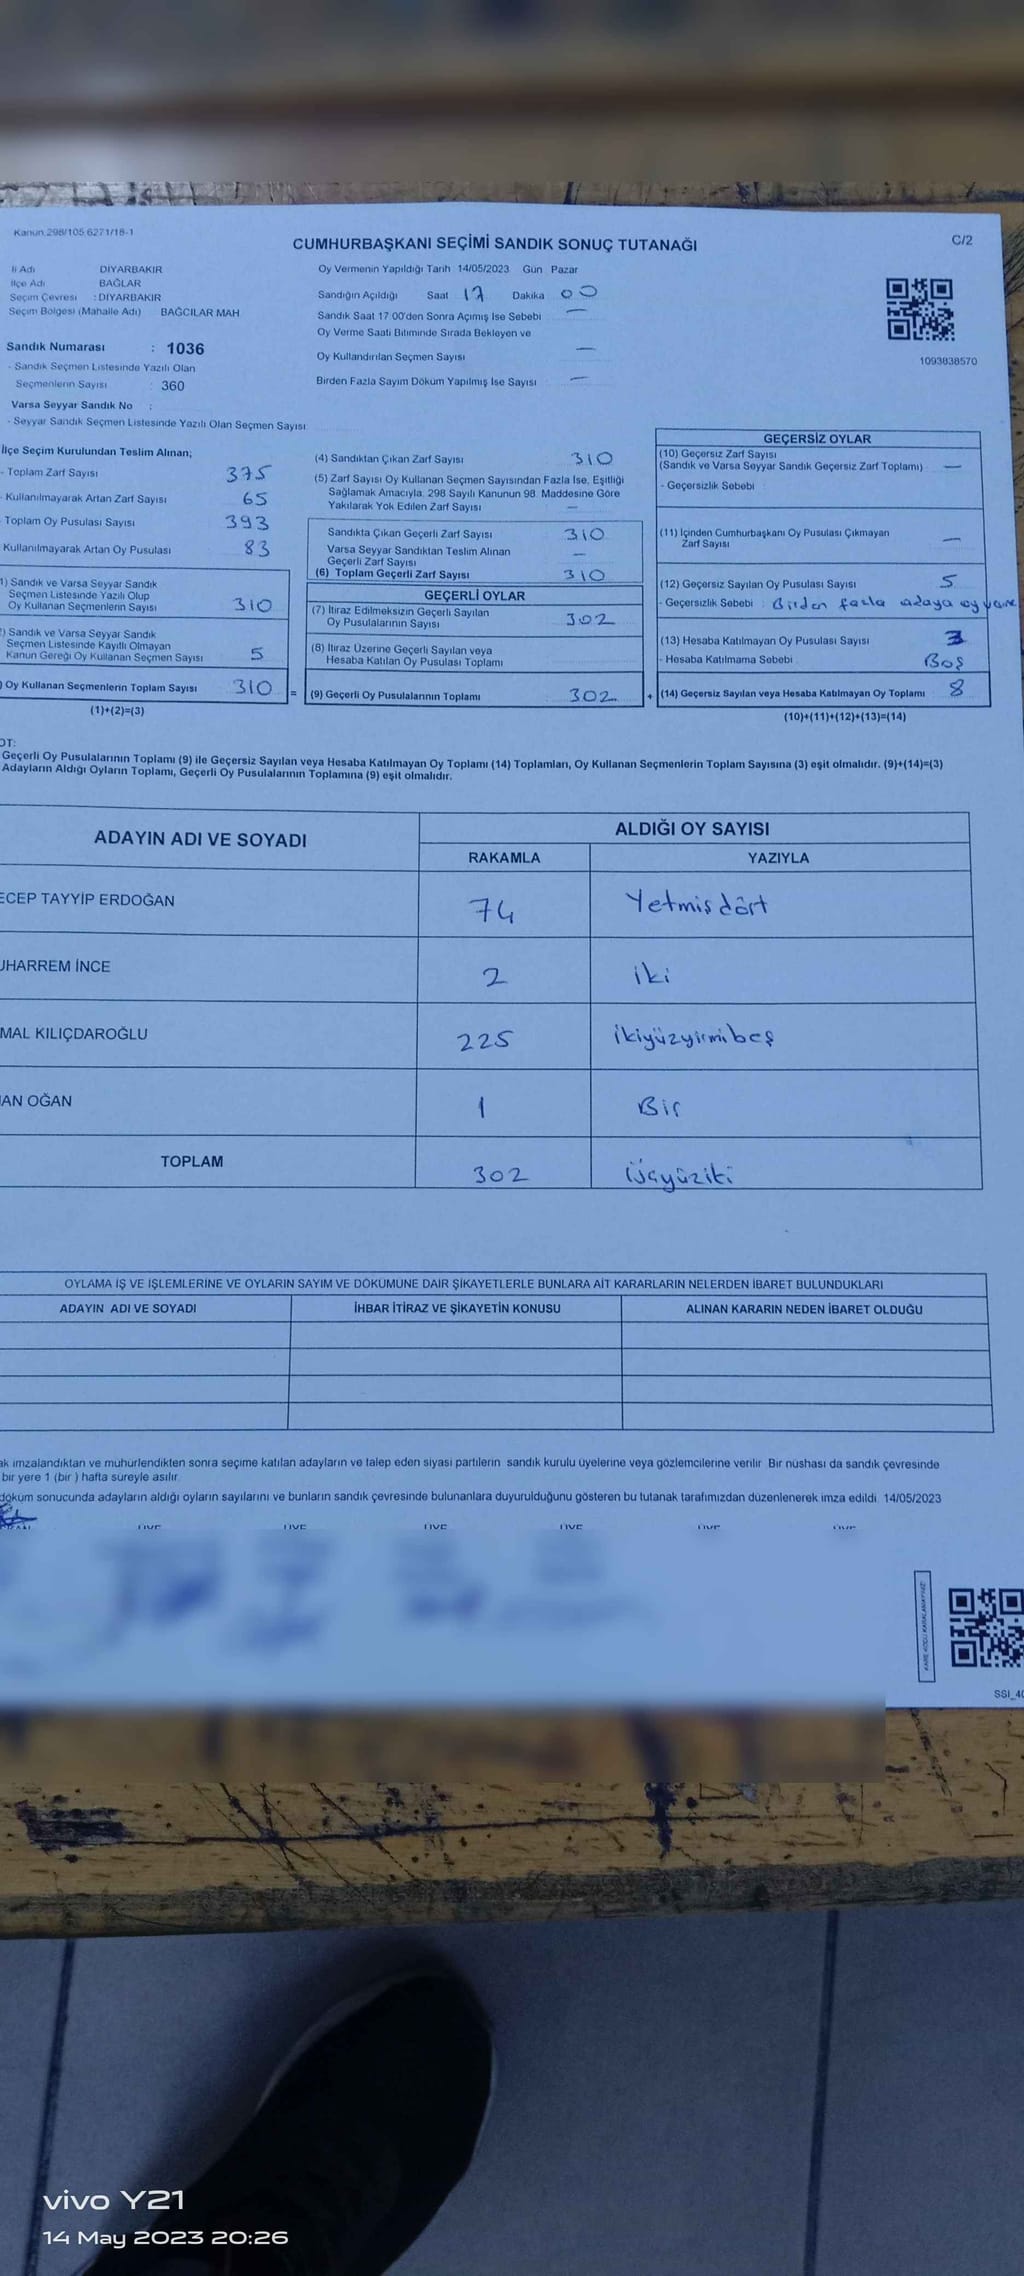 Kanun 298/105 6271/18-1
CUMHURBAŞKANI SEÇİMİ SANDIK SONUÇ TUTANAĞI
C/2
İl Adı DİYARBAKIR
İlçe Adı BAĞLAR
Seçim Çevresi : DİYARBAKIR
Seçim Bölgesi (Mahalle Adı) BAĞCILAR MAH
Sandık Numarası : 1036
- Sandık Seçmen Listesinde Yazılı Olan
Seçmenlerin Sayısı : 360
Varsa Seyyar Sandık No :
- Seyyar Sandık Seçmen Listesinde Yazılı Olan Seçmen Sayısı
Oy Vermenin Yapıldığı Tarih 14/05/2023 Gün Pazar
Sandığın Açıldığı Saat 17 Dakika 00
Sandık Saat 17 00'den Sonra Açımış İse Sebebi —
Oy Verme Saati Bitiminde Sırada Bekleyen ve
Oy Kullandırılan Seçmen Sayısı —
Birden Fazla Sayım Döküm Yapılmış İse Sayısı —
1093838570
İlçe Seçim Kurulundan Teslim Alınan;
- Toplam Zarf Sayısı 375
- Kullanılmayarak Artan Zarf Sayısı 65
Toplam Oy Pusulası Sayısı 393
Kullanılmayarak Artan Oy Pusulası 83
1) Sandık ve Varsa Seyyar Sandık
Seçmen Listesinde Yazılı Olup
Oy Kullanan Seçmenlerin Sayısı 310
) Sandık ve Varsa Seyyar Sandık
Seçmen Listesinde Kayıtlı Olmayan
Kanun Gereği Oy Kullanan Seçmen Sayısı 5
) Oy Kullanan Seçmenlerin Toplam Sayısı 310 =
(1)+(2)=(3)
(4) Sandıktan Çıkan Zarf Sayısı 310
(5) Zarf Sayısı Oy Kullanan Seçmen Sayısından Fazla İse, Eşitliği
Sağlamak Amacıyla, 298 Sayılı Kanunun 98 Maddesine Göre
Yakılarak Yok Edilen Zarf Sayısı —
Sandıkta Çıkan Geçerli Zarf Sayısı 310
Varsa Seyyar Sandıktan Teslim Alınan
Geçerli Zarf Sayısı —
(6) Toplam Geçerli Zarf Sayısı 310
GEÇERLİ OYLAR
(7) İtiraz Edilmeksizin Geçerli Sayılan
Oy Pusulalarının Sayısı 302
(8) İtiraz Üzerine Geçerli Sayılan veya
Hesaba Katılan Oy Pusulası Toplamı
(9) Geçerli Oy Pusulalarının Toplamı 302 +
GEÇERSİZ OYLAR
(10) Geçersiz Zarf Sayısı
(Sandık ve Varsa Seyyar Sandık Geçersiz Zarf Toplamı) —
- Geçersizlik Sebebi
(11) İçinden Cumhurbaşkanı Oy Pusulası Çıkmayan
Zarf Sayısı —
(12) Geçersiz Sayılan Oy Pusulası Sayısı 5
- Geçersizlik Sebebi : Birden fazla adaya oy
(13) Hesaba Katılmayan Oy Pusulası Sayısı 3
- Hesaba Katılmama Sebebi Boş
(14) Geçersiz Sayılan veya Hesaba Katılmayan Oy Toplamı 8
(10)+(11)+(12)+(13)=(14)
OT:
Geçerli Oy Pusulalarının Toplamı (9) ile Geçersiz Sayılan veya Hesaba Katılmayan Oy Toplamı (14) Toplamları, Oy Kullanan Seçmenlerin Toplam Sayısına (3) eşit olmalıdır. (9)+(14)=(3)
Adayların Aldığı Oyların Toplamı, Geçerli Oy Pusulalarının Toplamına (9) eşit olmalıdır.
ADAYIN ADI VE SOYADI
ALDIĞI OY SAYISI
RAKAMLA YAZIYLA
ECEP TAYYİP ERDOĞAN 74 Yetmişdört
UHARREM İNCE 2 iki
MAL KILIÇDAROĞLU 225 ikiyüzyirmibeş
NAN OĞAN 1 Bir
TOPLAM 302 Üçyüziki
OYLAMA İŞ VE İŞLEMLERİNE VE OYLARIN SAYIM VE DÖKÜMÜNE DAİR ŞİKAYETLERLE BUNLARA AİT KARARLARIN NELERDEN İBARET BULUNDUKLARI
ADAYIN ADI VE SOYADI İHBAR İTİRAZ VE ŞİKAYETİN KONUSU ALINAN KARARIN NEDEN İBARET OLDUĞU
ak imzalandıktan ve mühürlendikten sonra seçime katılan adayların ve talep eden siyasi partilerin sandık kurulu üyelerine veya gözlemcilerine verilir Bir nüshası da sandık çevresinde
bir yere 1 (bir ) hafta süreyle asılır
döküm sonucunda adayların aldığı oyların sayılarını ve bunların sandık çevresinde bulunanlara duyurulduğunu gösteren bu tutanak tarafımızdan düzenlenerek imza edildi 14/05/2023
ÜYE ÜYE ÜYE ÜYE ÜYE ÜYE
SSI_40
vivo Y21
14 May 2023 20:26